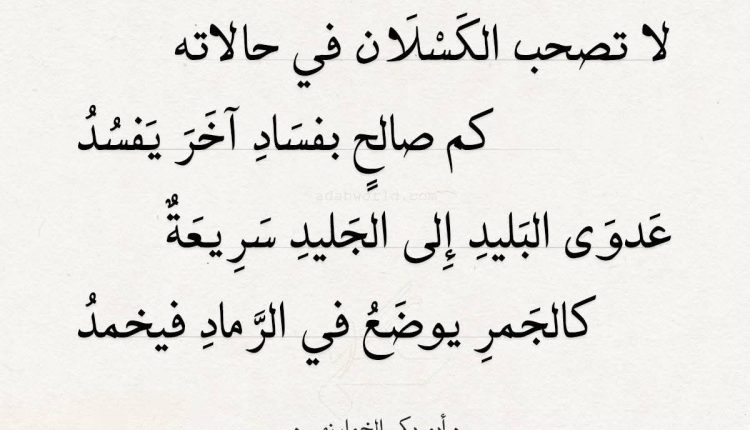 لا تصحب الكَسْلَان في حالاته
كم صالحٍ بفسَادِ آخَرَ يَفسُدُ
adabworld.com
عَدوَى البَليدِ إِلى الجَليدِ سَرِيعَةٌ
كالجَمرِ يوضَعُ في الرَّمادِ فيخمدُ